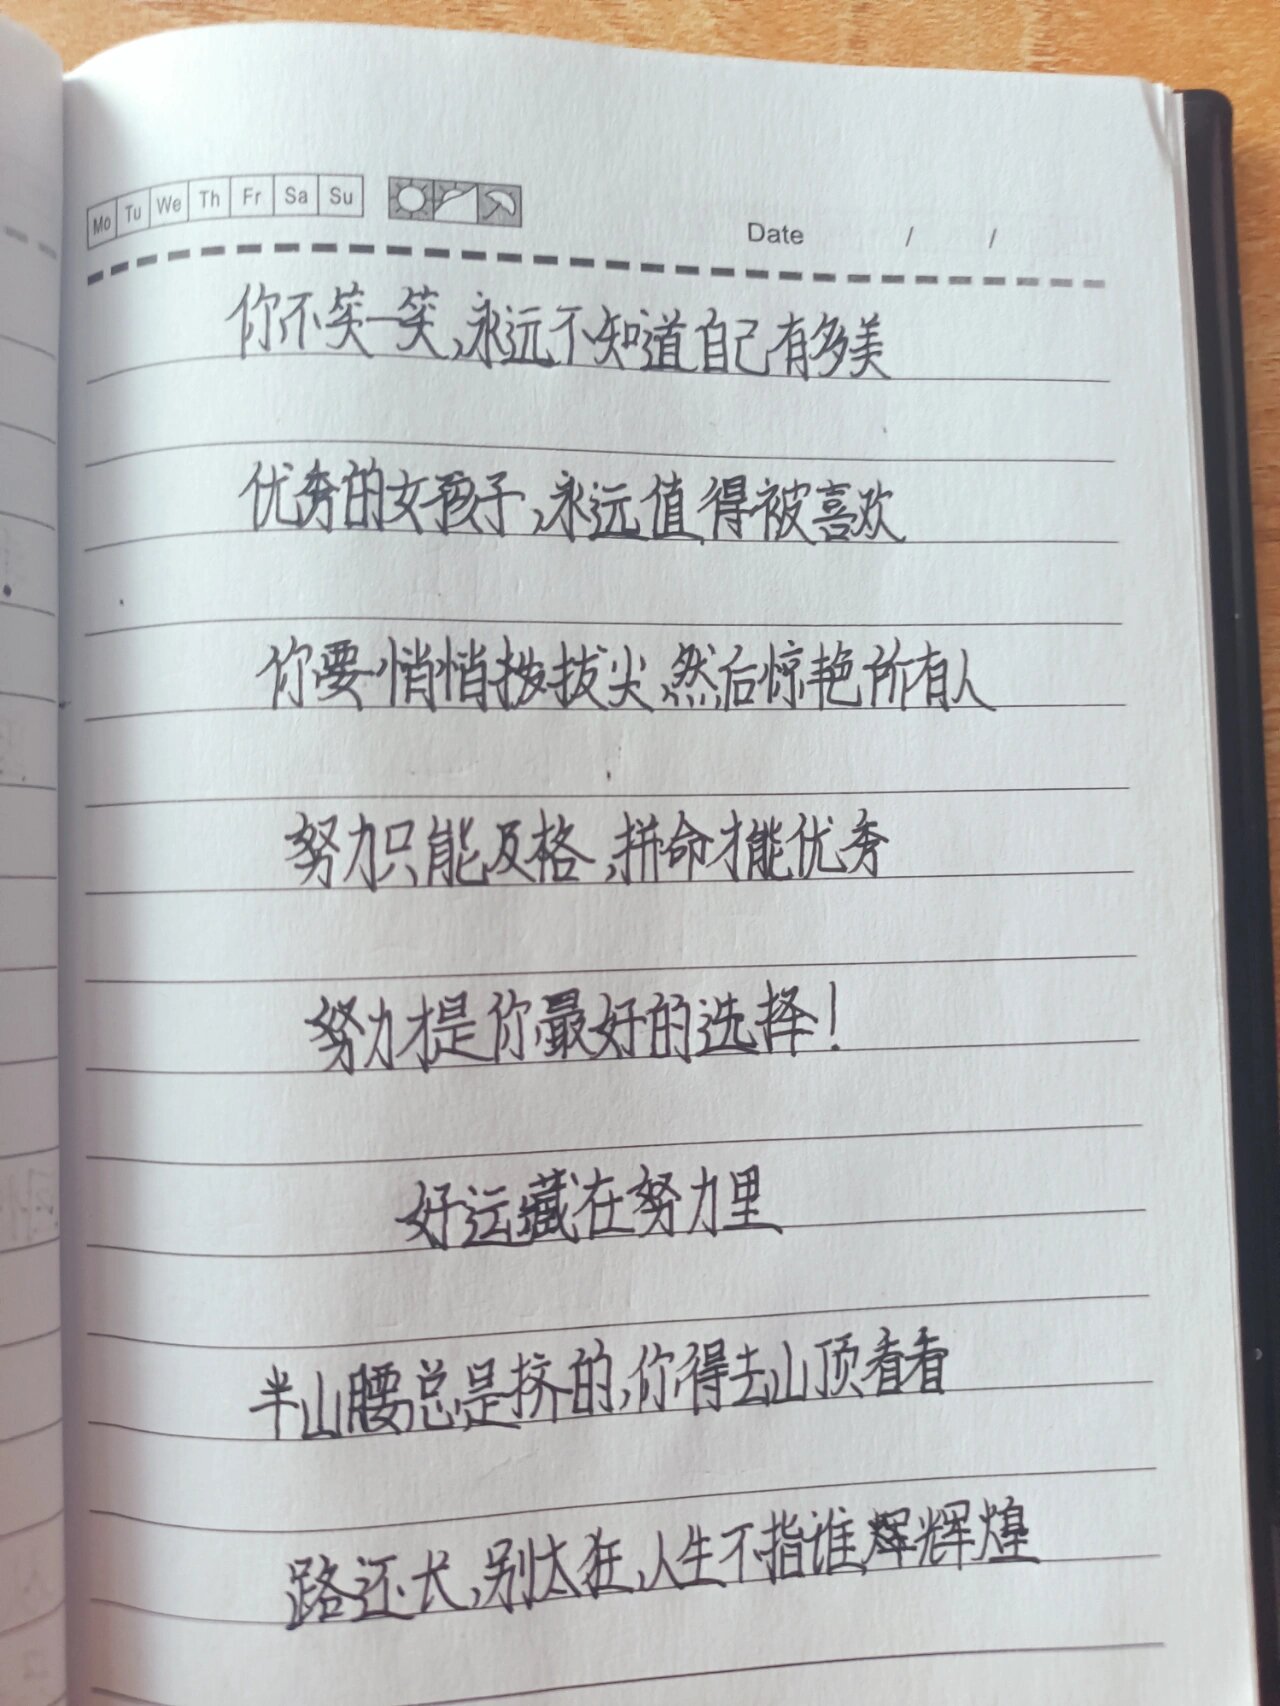 Mo Tu We Th Fr Sa Su
Date / /
你不笑一笑,永远不知道自己有多美
优秀的女孩子,永远值得被喜欢
你要悄悄拨拔尖,然后惊艳所有人
努力只能及格,拼命才能优秀
努力才是你最好的选择!
好运藏在努力里
半山腰总是挤的,你得去山顶看看
路还长,别太狂,人生不指谁辉辉煌